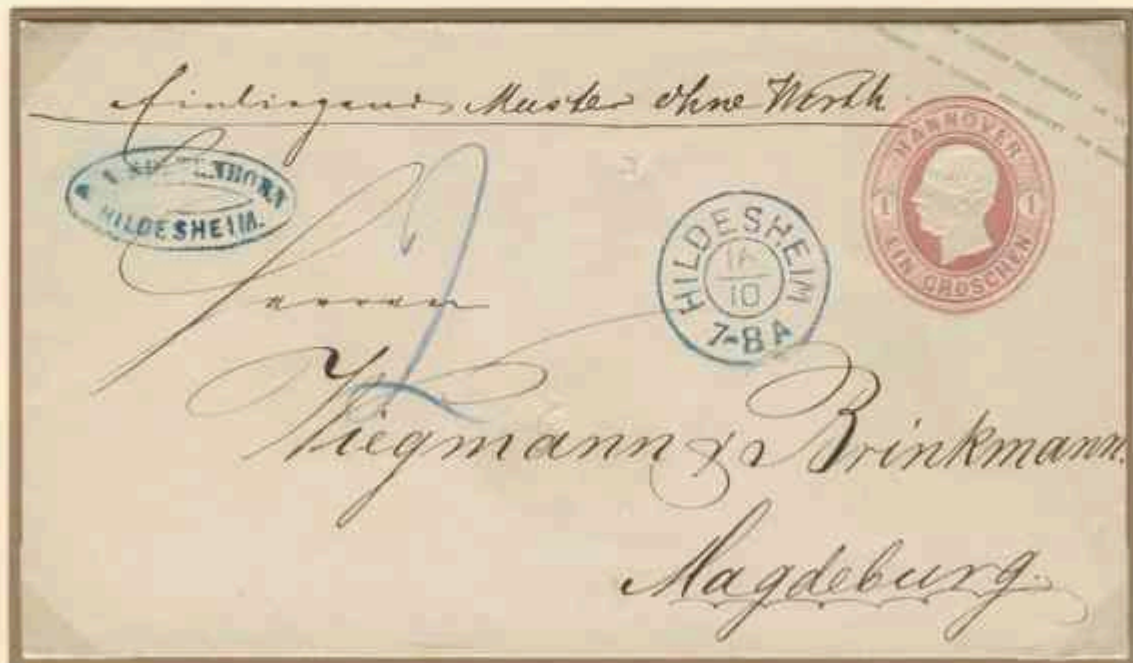 Einliegend Muster ohne Werth
HILDESHEIM.
HANNOVER
1 1
EIN GROSCHEN
HILDESHEIM
10
7-8 A
2
Herren
Wiegmann & Brinkmann.
Magdeburg.